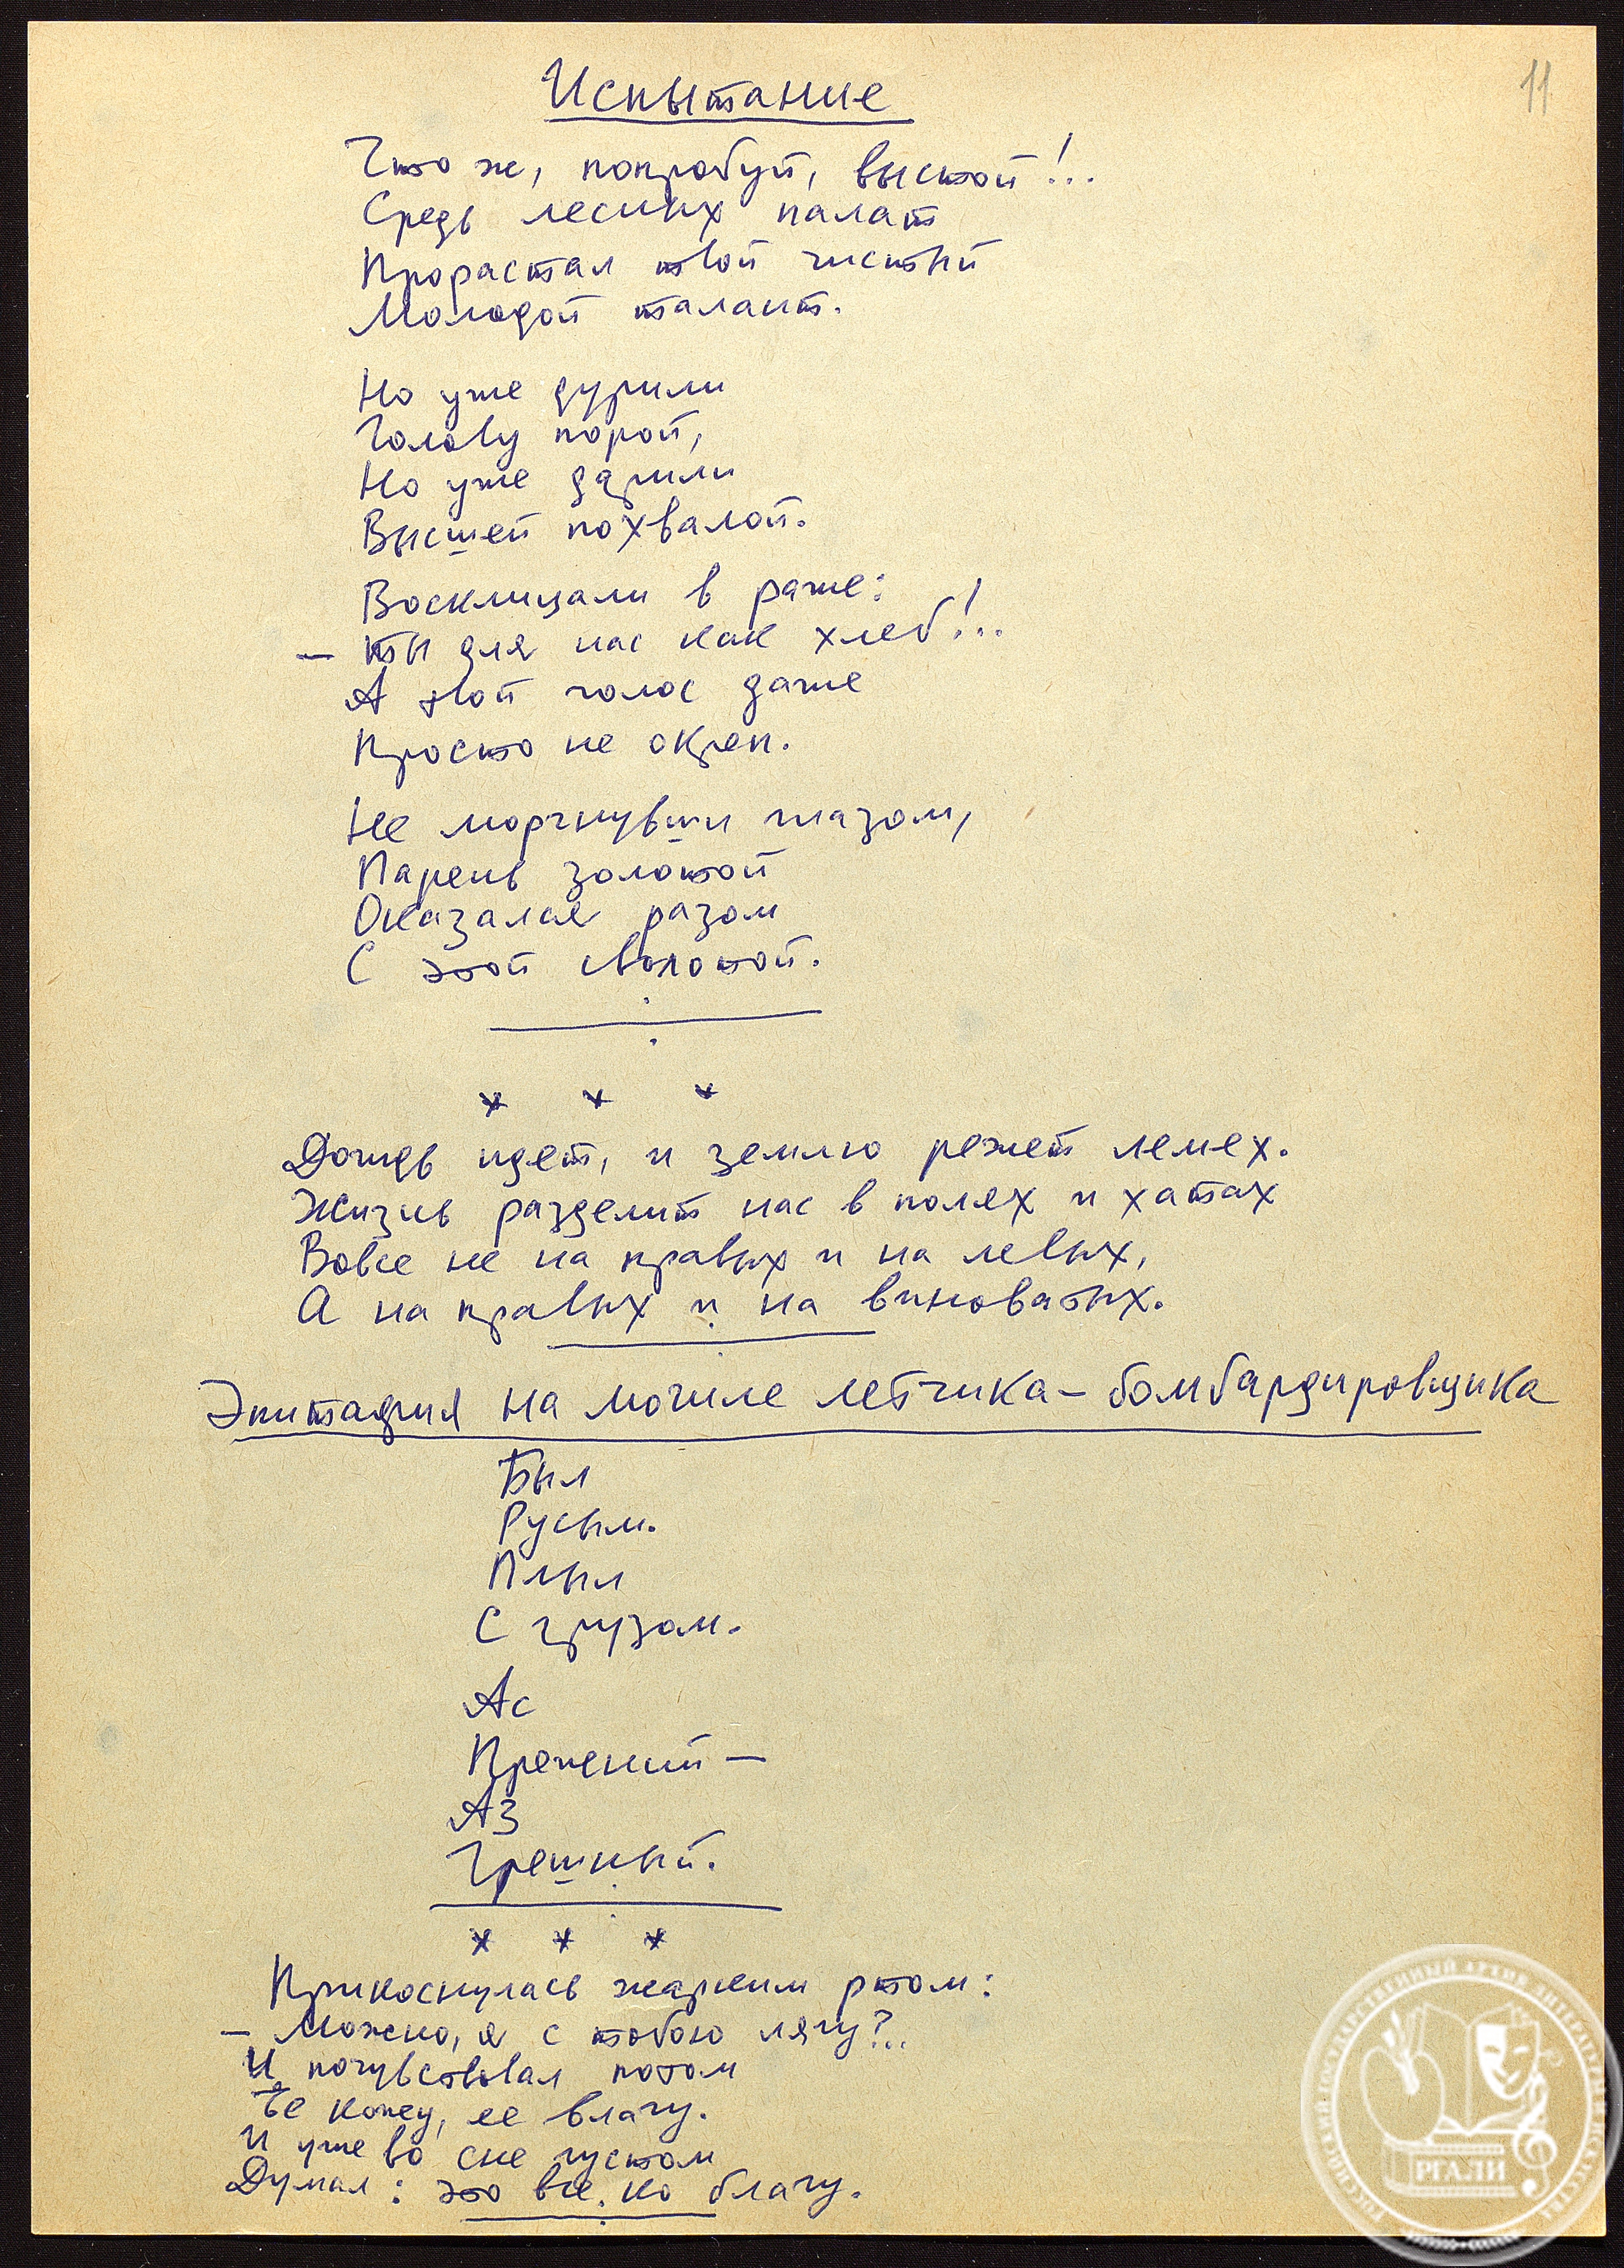 11
Испытание
Что ж, попробуй, выстой!..
Средь лесных палат
Прорастал твой чистый
Молодой талант.
Но уже дурили
Голову порой,
Но уже дарили
Высшей похвалой.
Восклицали в раже:
– Ты для нас как хлеб!..
А твой голос даже
Просто не окреп.
Не моргнувши глазом,
Парень золотой
Оказался разом
С этой сволотой.
* * *
Дождь идет, и землю режет лемех.
Жизнь разделит нас в полях и хатах
Вовсе не на правых и на левых,
А на правых и на виноватых.
Эпитафия на могиле летчика-бомбардировщика
Был
Русым.
Плыл
С грузом.
Ас
Прежний –
Аз
Грешный.
* * *
Прикоснулась жарким ртом:
– Можно, я с тобою лягу?..
И почувствовал потом
Ее кожу, ее влагу.
И уже во сне густом
Думал: это все ко благу.
РОССИЙСКИЙ ГОСУДАРСТВЕННЫЙ АРХИВ ЛИТЕРАТУРЫ И ИСКУССТВА
РГАЛИ